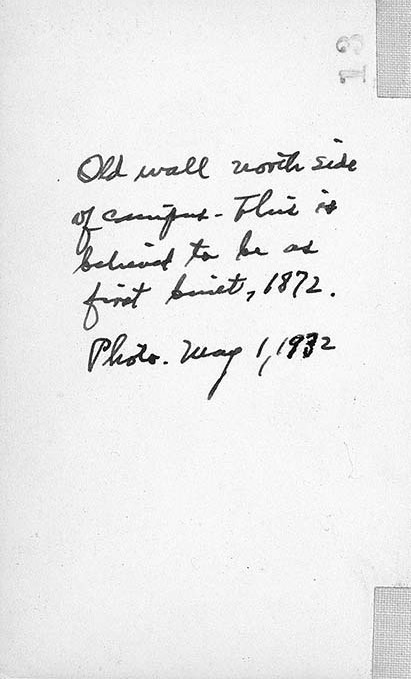 13
Old wall north side
of campus - This is
believed to be as
first built, 1872.
Photo. May 1, 1932